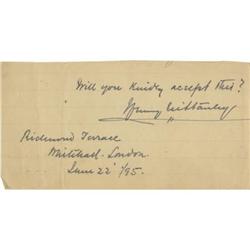 Will you kindly accept this?
Henry M Stanley
Richmond Terrace
Whitehall - London
June 22 /95.